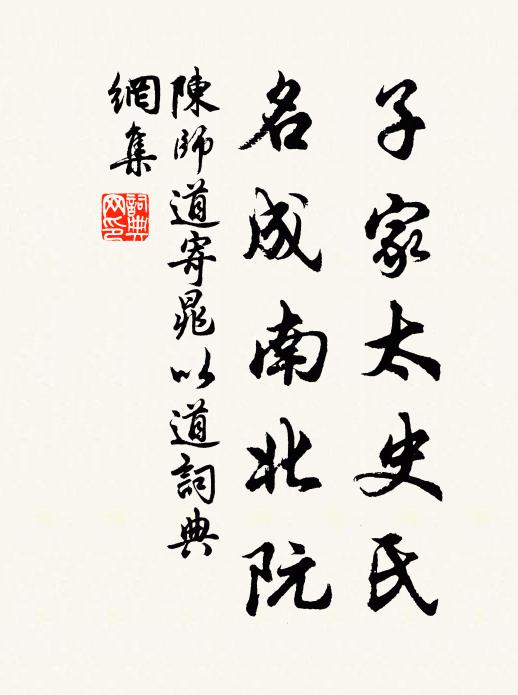 子家太史氏
名成南北阮
陳師道寄晁以道詞典
網集
詞典网印